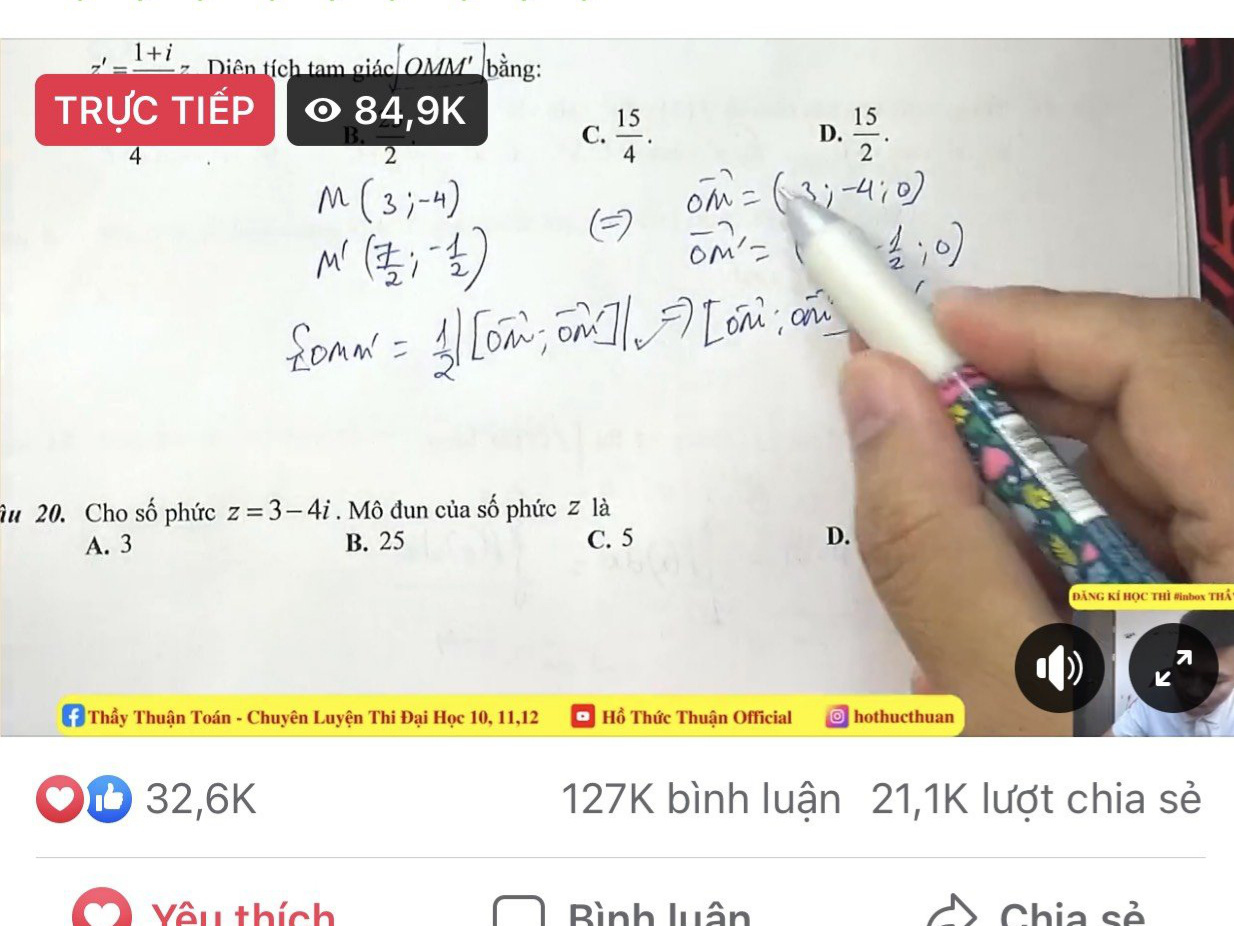 z' = 1+i z. Diện tích tam giác OMM' bằng:
TRỰC TIẾP 84,9K
4 B. 2. C. 15/4. D. 15/2.
M(3;-4) OM = (3;-4;0)
M'(7/2;-1/2) (=) OM' = ( -1/2;0)
SOMM' = 1/2|[OM;OM']|. => [OM;OM
âu 20. Cho số phức z = 3 – 4i. Mô đun của số phức z là
A. 3 B. 25 C. 5 D.
ĐĂNG KÍ HỌC THÌ #inbox THẦY
Thầy Thuận Toán - Chuyên Luyện Thi Đại Học 10, 11,12 Hồ Thức Thuận Official hothucthuan
32,6K 127K bình luận 21,1K lượt chia sẻ
Yêu thích Bình luận Chia sẻ